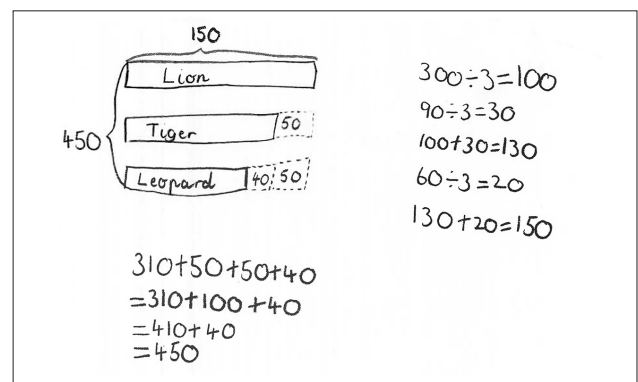 150
Lion
450
Tiger 50
Leopard 40 50
310+50+50+40
=310+100+40
=410+40
=450
300÷3=100
90÷3=30
100+30=130
60÷3=20
130+20=150